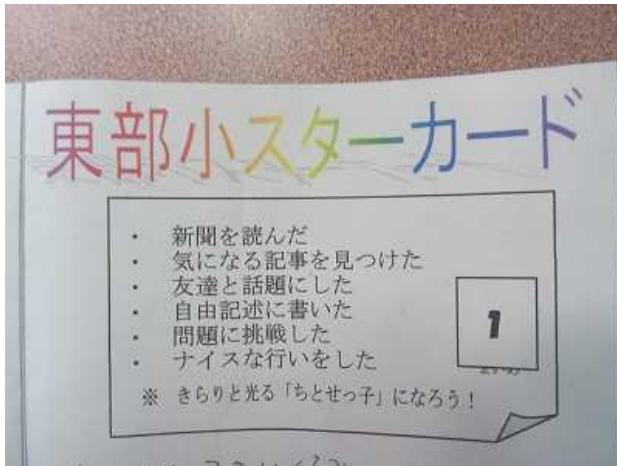 東部小スターカード
・ 新聞を読んだ
・ 気になる記事を見つけた
・ 友達と話題にした
・ 自由記述に書いた
・ 問題に挑戦した
・ ナイスな行いをした
1
※ きらりと光る「ちとせっ子」になろう！